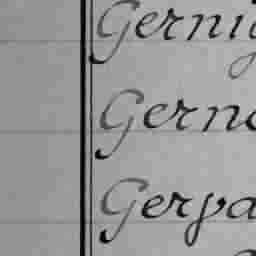 Gernig
Gerno
Gerva